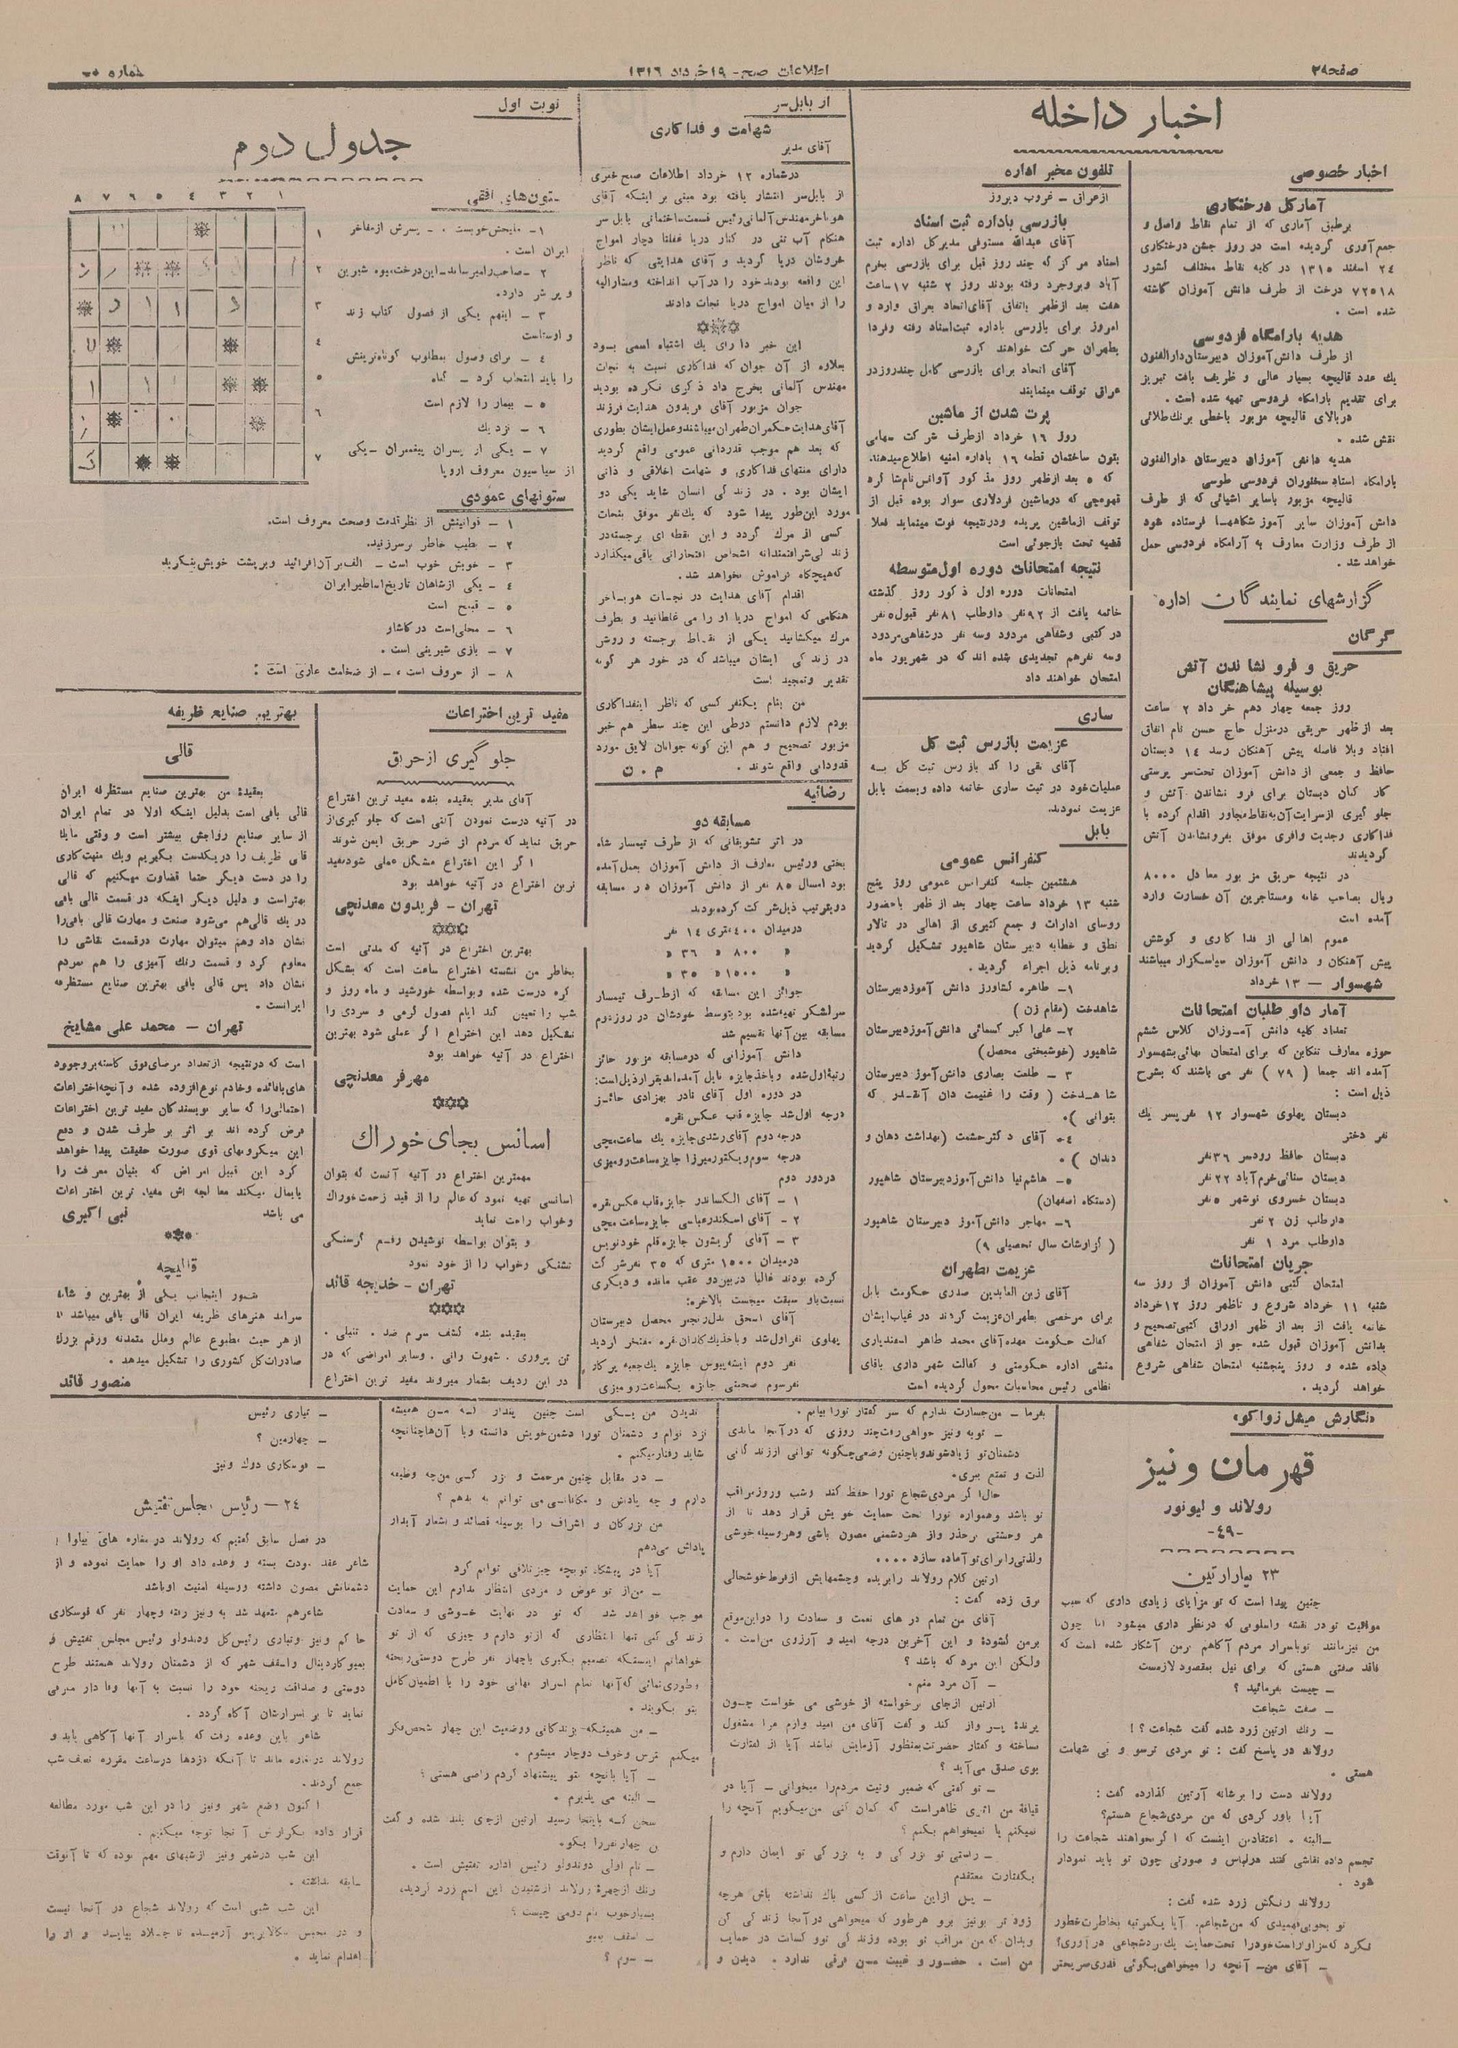 صفحه ۲
اطلاعات صبح - ۱۹ خرداد ۱۳۱۶
شماره
اخبار داخله
اخبار خصوصی
آمار کل درختکاری
برطبق آماری که از تمام نقاط واصل و
جمع‌آوری گردیده است در روز جشن درختکاری
۲۴ اسفند ۱۳۱۵ در کلیه نقاط مختلف کشور
۷۲۵۱۸ درخت از طرف دانش آموزان کاشته
شده است .
هدیه بارامگاه فردوسی
از طرف دانش‌آموزان دبیرستان دارالفنون
یك عدد قالیچه بسیار عالی و ظریف بافت تبریز
برای تقدیم بارامگاه فردوسی تهیه شده است .
دربالای قالیچه مزبور باخطی برنك طلائی
نقش شده .
هدیه دانش آموزان دبیرستان دارالفنون
بارامگاه استاد سخنوران فردوسی طوسی
قالیچه مزبور باسایر اشیائی که از طرف
دانش آموزان سایر آموزشگاهها فرستاده شود
از طرف وزارت معارف به آرامگاه فردوسی حمل
خواهد شد .
گزارشهای نمایندگان اداره
گرگان
حریق و فرو نشاندن آتش
بوسیله پیشاهنگان
روز جمعه چهار دهم خرداد ۲ ساعت
بعد ازظهر حریقی درمنزل حاج حسن نام اتفاق
افتاد وبلا فاصله پیش آهنگان رسد ۱۴ دبستان
حافظ و جمعی از دانش آموزان تحت سر پرستی
کار کنان دبستان برای فرو نشاندن آتش و
جلو گیری ازسرایت آن به نقاط مجاور اقدام کرده با
فداکاری وجدیت وافری موفق بفرونشاندن آتش
گردیدند
در نتیجه حریق مز بور معا دل ۸۰۰۰
ریال بصاحب خانه ومستاجرین آن خسارت وارد
آمده است
عموم اهالی از فدا کاری و کوشش
پیش آهنگان و دانش آموزان سپاسگزار میباشند
شهسوار — ۱۳ خرداد
آمار داو طلبان امتحانات
تعداد کلیه دانش آموزان کلاس ششم
حوزه معارف تنکابن که برای امتحان نهائی بشهسوار
آمده اند جمعا ( ۷۹ ) نفر می باشند که بشرح
ذیل است :
دبستان پهلوی شهسوار ۱۲ نفر پسر یك
نفر دختر
دبستان حافظ رودسر ۳۶ نفر
دبستان سنائی خرم‌آباد ۲۲ نفر
دبستان خسروی نوشهر ۵ نفر
داوطلب زن ۲ نفر
داوطلب مرد ۱ نفر
جریان امتحانات
امتحان کتبی دانش آموزان از روز سه
شنبه ۱۱ خرداد شروع و تاظهر روز ۱۲ خرداد
خاتمه یافت از بعد از ظهر اوراق کتبی تصحیح و
بدانش آموزان قبول شده جو از امتحان شفاهی
داده شده و روز پنجشنبه امتحان شفاهی شروع
خواهد گردید .
تلفون مخبر اداره
ازعراق — غروب دیروز
بازرسی باداره ثبت اسناد
آقای عبدالله مستوفی مدیرکل اداره ثبت
اسناد مرکز که چند روز قبل برای بازرسی بخرم
آباد وبروجرد رفته بودند روز ۲ شنبه ۱۷ ساعت
هفت بعد ازظهر باتفاق آقای اتحاد بعراق وارد و
امروز برای بازرسی باداره ثبت اسناد رفته وفردا
بطهران حرکت خواهند کرد
آقای اتحاد برای بازرسی کامل چندروزدر
عراق توقف مینمایند
پرت شدن از ماشین
روز ۱۶ خرداد ازطرف شرکت سهامی
بتون ساختمان قطعه ۱۶ باداره امنیه اطلاع میدهند
که ۵ بعد ازظهر روز مذکور آوانس نام شاگرد
قهوه‌چی که درماشین فردلاری سوار بوده قبل از
توقف ازماشین پریده ودرنتیجه فوت مینماید فعلا
قضیه تحت بازجوئی است
نتیجه امتحانات دوره اول متوسطه
امتحانات دوره اول ذکور روز گذشته
خاتمه یافت از ۹۲ نفر داوطلب ۸۱ نفر قبول ۵ نفر
در کتبی وشفاهی مردود وسه نفر درشفاهی مردود
وسه نفرهم تجدیدی شده اند که در شهریور ماه
امتحان خواهند داد
ساری
عزیمت بازرس ثبت کل
آقای نقی را کد بازرس ثبت کل بسه
عملیات خود در ثبت ساری خاتمه داده وبسمت بابل
عزیمت نمودند.
بابل
کنفرانس عمومی
هشتمین جلسه کنفرانس عمومی روز پنج
شنبه ۱۳ خرداد ساعت چهار بعد از ظهر باحضور
روسای ادارات و جمع کثیری از اهالی در تالار
نطق و خطابه دبیرستان شاهپور تشکیل گردید
وبرنامه ذیل اجراء گردید .
۱- طاهره کشاورز دانش آموزدبیرستان
شاهدخت (مقام زن )
۲- علی‌اکبر کسمائی دانش‌آموزدبیرستان
شاهپور (خوشبختی محصل)
۳ - طلعت بصاری دانش‌آموز دبیرستان
شاهدخت ( وقت را غنیمت دان آنقدر که
بتوانی ) .
۴- آقای دکتر حشمت (بهداشت دهان و
دندان ) .
۵- هاشم نیا دانش آموزدبیرستان شاهپور
(دستگاه اصفهان)
۶- مهاجر دانش‌آموز دبیرستان شاهپور
( گزارشات سال تحصیلی ۹ )
عزیمت بطهران
آقای زین العابدین صدری حکومت بابل
برای مرخصی بطهران عزیمت کردند در غیاب ایشان
کفالت حکومت بعهده آقای محمد طاهر اسفندیاری
منشی اداره حکومتی و کفالت شهر داری باقای
نظامی رئیس محاسبات محول گردیده است
از بابل‌سر
شهامت و فداکاری
آقای مدیر
درشماره ۱۲ خرداد اطلاعات صبح خبری
از بابل‌سر انتشار یافته بود مبنی بر اینکه آقای
هوباخر مهندس آلمانی رئیس قسمت ساختمانی بابل سر
هنگام آب تنی در کنار دریا غفلتا دچار امواج
خروشان دریا گردید و آقای هدایتی که ناظر
این واقعه بودند خود را در آب انداخته ومشارالیه
را از میان امواج دریا نجات دادند
این خبر دارای یك اشتباه اسمی بود
بعلاوه از آن جوان که فداکاری نسبت به نجات
مهندس آلمانی بخرج داد ذکری نکرده بودید
جوان مزبور آقای فریدون هدایت فرزند
آقای هدایت حکمران طهران میباشند وعمل ایشان بطوری
که بعد هم موجب قدردانی عمومی واقع گردید
دارای منتهای فداکاری و شهامت اخلاقی و ذاتی
ایشان بود . در زندگی انسان شاید یکی دو
مورد این‌طور پیدا شود که یك نفر موفق بنجات
کسی از مرك گردد و این نقطه‌ای برجسته در
زندگی شرافتمندانه اشخاص افتخاراتی باقی میگذارد
که هیچگاه فراموش نخواهد شد.
اقدام آقای هدایت در نجات هوباخر
هنگامی که امواج دریا او را می غلطانید و بطرف
مرك میکشانید یکی از نقاط برجسته و روشن
در زندگی ایشان میباشد که در خور هر گونه
تقدیر وتمجید است
من بنام یکنفر کسی که ناظر اینفداکاری
بودم لازم دانستم درطی این چند سطر هم خبر
مزبور تصحیح و هم این گونه جوانان لایق مورد
قدردانی واقع شوند . م . ن
رضائیه
مسابقه دو
در اثر تشویقاتی که از طرف تیمسار شاه
بختی ورئیس معارف از دانش آموزان بعمل آمده
بود امسال ۸۵ نفر از دانش آموزان در مسابقه
دو بترتیب ذیل شرکت کرده بودند
درمیدان ۴۰۰ متری ۱۴ نفر
« ۸۰۰ « ۳۶ «
« ۱۵۰۰ « ۳۵ «
جوائز این مسابقه که ازطرف تیمسار
سرلشگر تهیه شده بود بتوسط خودشان در روزدوم
مسابقه بین آنها تقسیم شد
دانش آموزانی که درمسابقه مزبور حائز
رتبۀ اول شده و باخذ جایزه نایل آمده‌اند بقرار ذیل است:
در دوره اول آقای نادر بهزادی حائز
درجه اول شد جایزه قاب عکس نقره
درجه دوم آقای رشدی جایزه یك ساعت مچی
درجه سوم ویکتور میرزا جایزه ساعت رومیزی
دردور دوم
۱ - آقای الکساندر جایزه قاب عکس نقره
۲ - آقای اسکندر عباسی جایزه ساعت مچی
۳ - آقای گریشون جایزه قلم خودنویس
درمیدان ۱۵۰۰ متری که ۳۵ نفر شرکت
کرده بودند غالبا دربین دو عقب مانده و دیگری
نسبت باو سبقت میجست بالاخره:
پهلوی نفر اول شد و باخذ یك گلدان نقره مفتخر گردید
نفرسوم صحتی جائزه یکساعت رومیزی
نوبت اول
جدول دوم
۱ ۲ ۳ ۴ ۵ ۶ ۷ ۸
۱
۲
۳
۴
۵
۶
۷
ستون‌های افقی
ایران است .
۲ - صاحب رامیر ساند - این درخت میوه شیرین
و پر شر دارد.
۳ - اینهم یکی از فصول کتاب زند
و اوستاست
۴ - برای وصول بمطلوب کوتاه‌ترینش
را باید انتخاب کرد - گناه
۵ - بیمار را لازم است
۶ - نزدیك
۷ - یکی از پسران پیغمبران - یکی
از سیاسیون معروف اروپا
ستونهای عمودی
۱ - قوانینش از نظر قدمت وصحت معروف است.
۲ - بطیب خاطر برسر زنید.
۳ - خوبش خوب است - الف بر آن افزائید و بر پشت خویش بنگرید
۴ - یکی از شاهان تاریخ اساطیر ایران
۵ - قبیح است
۶ - محلی است در کاشار
۷ - بازی شیرینی است .
۸ - از حروف است ، - از ضخامت عاری است :
مفید ترین اختراعات
جلو گیری از حریق
آقای مدیر بعقیده بنده مفید ترین اختراع
در آتیه درست نمودن آلتی است که جلو گیری از
حریق نماید که مردم از ضرر حریق ایمن شوند
اگر این اختراع مشکل عملی شود مفید
ترین اختراع در آتیه خواهد بود
تهران - فریدون معدنچی
بهترین اختراع در آتیه که مدتی است
بخاطر من نشسته اختراع ساعت است که بشکل
کره درست شده وبواسطه خورشید و ماه روز و
شب را تعیین کند ایام فصول گرمی و سردی را
تشکیل دهد این اختراع اگر عملی شود بهترین
اختراع در آتیه خواهد بود
مهرفر معدنچی
اسانس بجای خوراك
مهمترین اختراع در آتیه آنست که بتوان
اسانسی تهیه نمود که عالم را از قید زحمت خوراك
وخواب راحت نماید
و بتوان بواسطه نوشیدن رفع گرسنگی
تشنگی و خواب را از خود نمود
تهران - خدیجه قائد
بعقیده بنده کشف سرم ضد . تنبلی .
تن پروری . شهوت رانی . وسایر امراضی که در
در این ردیف بشمار میروند مفید ترین اختراع
بهترین صنایع ظریفه
قالی
بعقیدۀ من بهترین صنایع مستظرفه ایران
قالی بافی است بدلیل اینکه اولا در تمام ایران
از سایر صنایع رواجش بیشتر است و وقتی مایك
قالی ظریف را دریکدست بگیریم ویك منبت‌کاری
را در دست دیگر حتما قضاوت میکنیم که قالی
بهتر است و دلیل دیگر اینکه در قسمت قالی بافی
در یك قالی هم می‌شود صنعت و مهارت قالی بافی را
نشان داد وهم میتوان مهارت درقسمت نقاشی را
معلوم کرد و قسمت رنك آمیزی را هم بمردم
نشان داد پس قالی بافی بهترین صنایع مستظرفه
ایرانست .
تهران — محمد علی مشایخ
است که درنتیجه ازتعداد مرضای فوق کاسته بر وجود
های بافائده وخادم نوع افزوده شده و آنچه اختراعات
احتمالی را که سایر نویسندگان مفید ترین اختراعات
فرض کرده اند بر اثر بر طرف شدن و دفع
این میکروبهای قوی صورت حقیقت پیدا خواهد
کرد این قبیل امراض که بنیان معرفت را
پایمال میکند معا لجه اش مفید ترین اختراعات
می باشد نبی اکبری
قالیچه
سرآمد هنرهای ظریفه ایران قالی بافی میباشد
از هر حیث مطبوع عالم وملل متمدنه ورقم بزرك
صادرات کل کشوری را تشکیل میدهد .
منصور قائد
«نگارش میشل زواکو»
قهرمان ونیز
رولاند و لیونور
-۴۹-
۲۳ بیارآرتین
چنین پیدا است که تو مزایای زیادی داری که سبب
موفقیت تو در نقشه واسلوبی که درنظر داری میشود اما چون
من نیز مانند تو باسرار مردم آگاهم بر من آشکار شده است که
فاقد صفتی هستی که برای نیل بمقصود لازمست
- چیست بفرمائید ؟
- صفت شجاعت
- رنك ارتین زرد شده گفت شجاعت ؟ !
رولاند در پاسخ گفت : تو مردی ترسو و بی شهامت
هستی .
رولاند دست را برشانه آرتین گذارده گفت :
آیا باور کردی که من مردی شجاع هستم؟
-البته . اعتقاد من اینست که اگر بخواهند شجاعت را
تجسم داده نقاشی کنند هرلباس و صورتی چون تو باید نمودار
شود .
رولاند رنگش زرد شده گفت :
تو بخوبی فهمیدی که من شجاعم. آیا یکمرتبه بخاطرت خطور
نکرد که سزاوار است خودرا تحت حمایت یك مرد شجاعی درآوری؟
- آقای من - آنچه را میخواهی بگوئی قدری صریحتر
بفرما - من جسارت ندارم که سر گفتار تورا بیابم .
- توبه ونیز خواهی رفت چند روزی که در آنجا ماندی
دشمنان تو زیاد شوند و باچنین وضعی چگونه توانی از زندگانی
لذت و تمتع ببری.
حال اگر مردی شجاع تورا حفظ کند وشب وروز مراقب
تو باشد وهمواره تورا تحت حمایت خویش قرار دهد تا از
هر وحشتی برحذر واز هر دشمنی مصون باشی وهروسیله خوشی
ولذتی را برای تو آماده سازد ....
ارتین کلام رولاند را بریده و چشمهایش از فرط خوشحالی
برق زده گفت :
آقای من تمام در های نعمت و سعادت را دراین موقع
برمن گشوده و این آخرین درجه امید و آرزوی من است .
ولیکن این مرد که باشد ؟
- آن مرد منم .
ارتین ازجای برخواسته از خوشی می خواست چون
پرنده پرواز کند و گفت آقای من امید وارم مرا مشغول
نساخته و گفتار حضرت بمنظور آزمایش نباشد آیا از گفتارت
بوی صدق می‌آید ؟
- تو گفتی که ضمیر ونیت مردم را میخوانی - آیا در
قیافۀ من اثری ظاهر است که گمان کنی من میگویم آنچه را
نمیکنم یا نمیخواهم بکنم ؟
- راستی تو بزرگی و به بزرگی تو ایمان دارم و
بگفتارت معتقدم
- پس ازاین ساعت از کسی باك نداشته باش هرچه
زود تر بونیز برو هرطور که میخواهی در آنجا زندگی کن
وبدان که من مراقب تو بوده وزندگی تو و کسانت در حمایت
من است . حضور و غیبت من فرقی ندارد . دیدن و
ندیدن من یکی است چنین پندار که من همیشه
نزد توام و دشمنان تورا دشمن خویش دانسته و با آن‌ها چنانچه
شاید رفتار میکنم .
- در مقابل چنین مرحمت و بزرگی من چه وظیفه
دارم و چه پاداش و مکافاتی می توانم به بدهم ؟
من بزرگان و اشراف را بوسیله قصائد و اشعار آبدار
پاداش می‌دهم
آیا در پیشگاه تو بچه چیز تلافی توانم کرد
- من از تو عوض و مردی انتظار ندارم این حمایت
موجب خواهد شد که تو در نهایت خوشی و سعادت
زندگی کنی تنها انتظاری که از تو دارم و چیزی که از تو
خواهانم اینستکه تصمیم بگیری باچهار نفر طرح دوستی ریخته
وطوری نمائی که آنها تمام اسرار نهانی خود را با اطمینان کامل
بتو بگویند .
- من همینکه بزندگانی ووضعیت این چهار شخص فکر
میکنم ترس وخوف دوچار میشوم .
- آیا بانچه بتو پیشنهاد کردم راضی هستی ؟
- البته می پذیرم .
سخن که باینجا رسید ارتین ازجای بلند شده و گفت
- نام اولی دوندولو رئیس اداره تفتیش است .
رنك ازچهرۀ رولاند ازشنیدن این اسم زرد گردید.
بسیارخوب نام دومی چیست ؟
- اسقف بمبو
- سوم ؟
- تیاری رئیس
- چهارمین ؟
- فوسکاری دوك ونیز
۲۴ - رئیس مجلس تفتیش
در فصل سابق گفتیم که رولاند در مغاره های پیاوا با
شاعر عقد مودت بسته و وعده داد او را حمایت نموده و از
دشمنانش مصون داشته ووسیله امنیت اوباشد
شاعرهم متعهد شد به ونیز رفته وچهار نفر که فوسکاری
حاکم ونیز وتیاری رئیس کل ودندولو رئیس مجلس تفتیش و
بمبو کاردینال واسقف شهر که از دشمنان رولاند هستند طرح
دوستی و صداقت ریخته خود را نسبت به آنها وفا دار معرفی
نماید تا بر اسرارشان آگاه گردد .
شاعر باین وعده رفت که باسرار آنها آگاهی یابد و
رولاند درمغاره ماند تا آنکه دزدها درساعت مقرره نصف شب
جمع گردند .
اکنون وضع شهر ونیز را در این شب مورد مطالعه
قرار داده بگزارش آنجا توجه میکنیم .
این شب درشهر ونیز ازشبهای مهم بوده که تا آنوقت
سابقه نداشته .
این شب شبی است که رولاند شجاع در آنجا نیست
اعدام نماید .